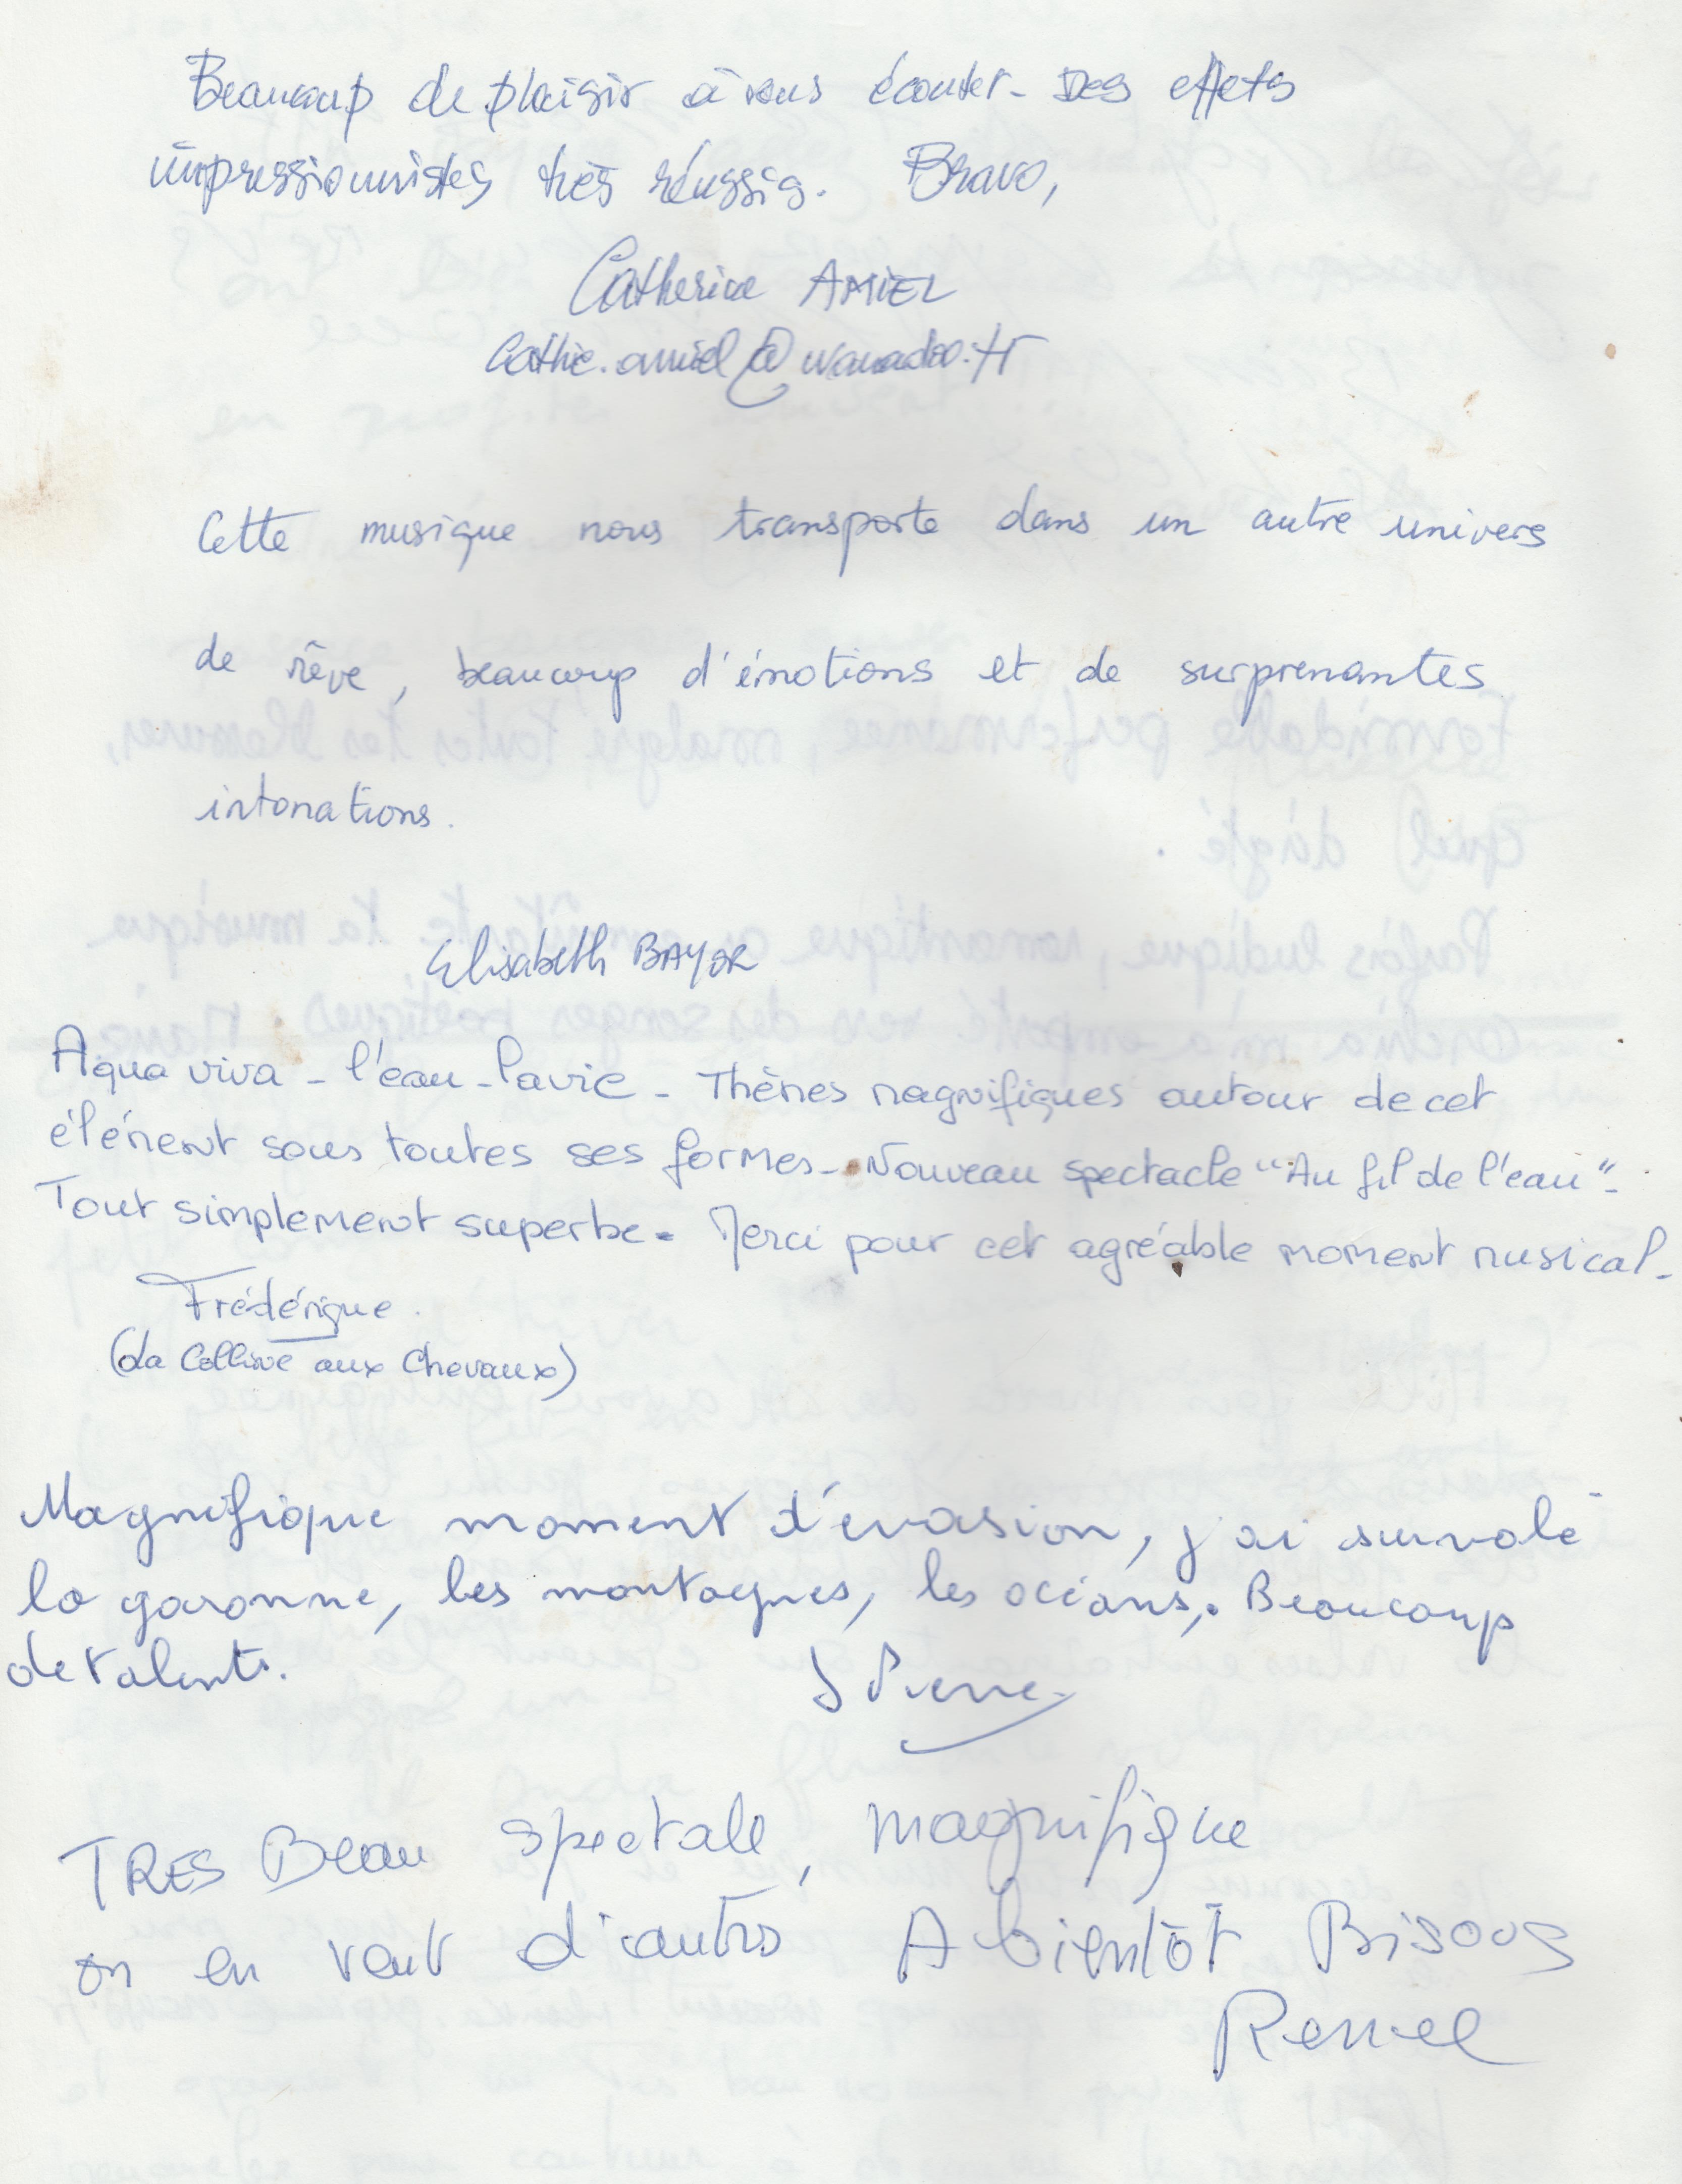 Beaucoup de plaisir à vous écouter - Des effets
impressionnistes très réussis. Bravo,
Catherine AMIEL
cathie.amiel@wanadoo.fr
Cette musique nous transporte dans un autre univers
de rêve, beaucoup d'émotions et de surprenantes
intonations.
Elisabeth BAYOR
Aqua viva - l'eau - la vie - Thèmes magnifiques autour de cet
élément sous toutes ses formes - Nouveau spectacle "Au fil de l'eau" -
Tout simplement superbe. Merci pour cet agréable moment musical -
Frédérique.
(La Colline aux Chevaux)
Magnifique moment d'évasion, j'ai survolé
la garonne, les montagnes, les océans,. Beaucoup
de talents.
J Pierre
TRES Beau spectale, magnifique
on en veut d'autres A bientôt Bisous
Renée